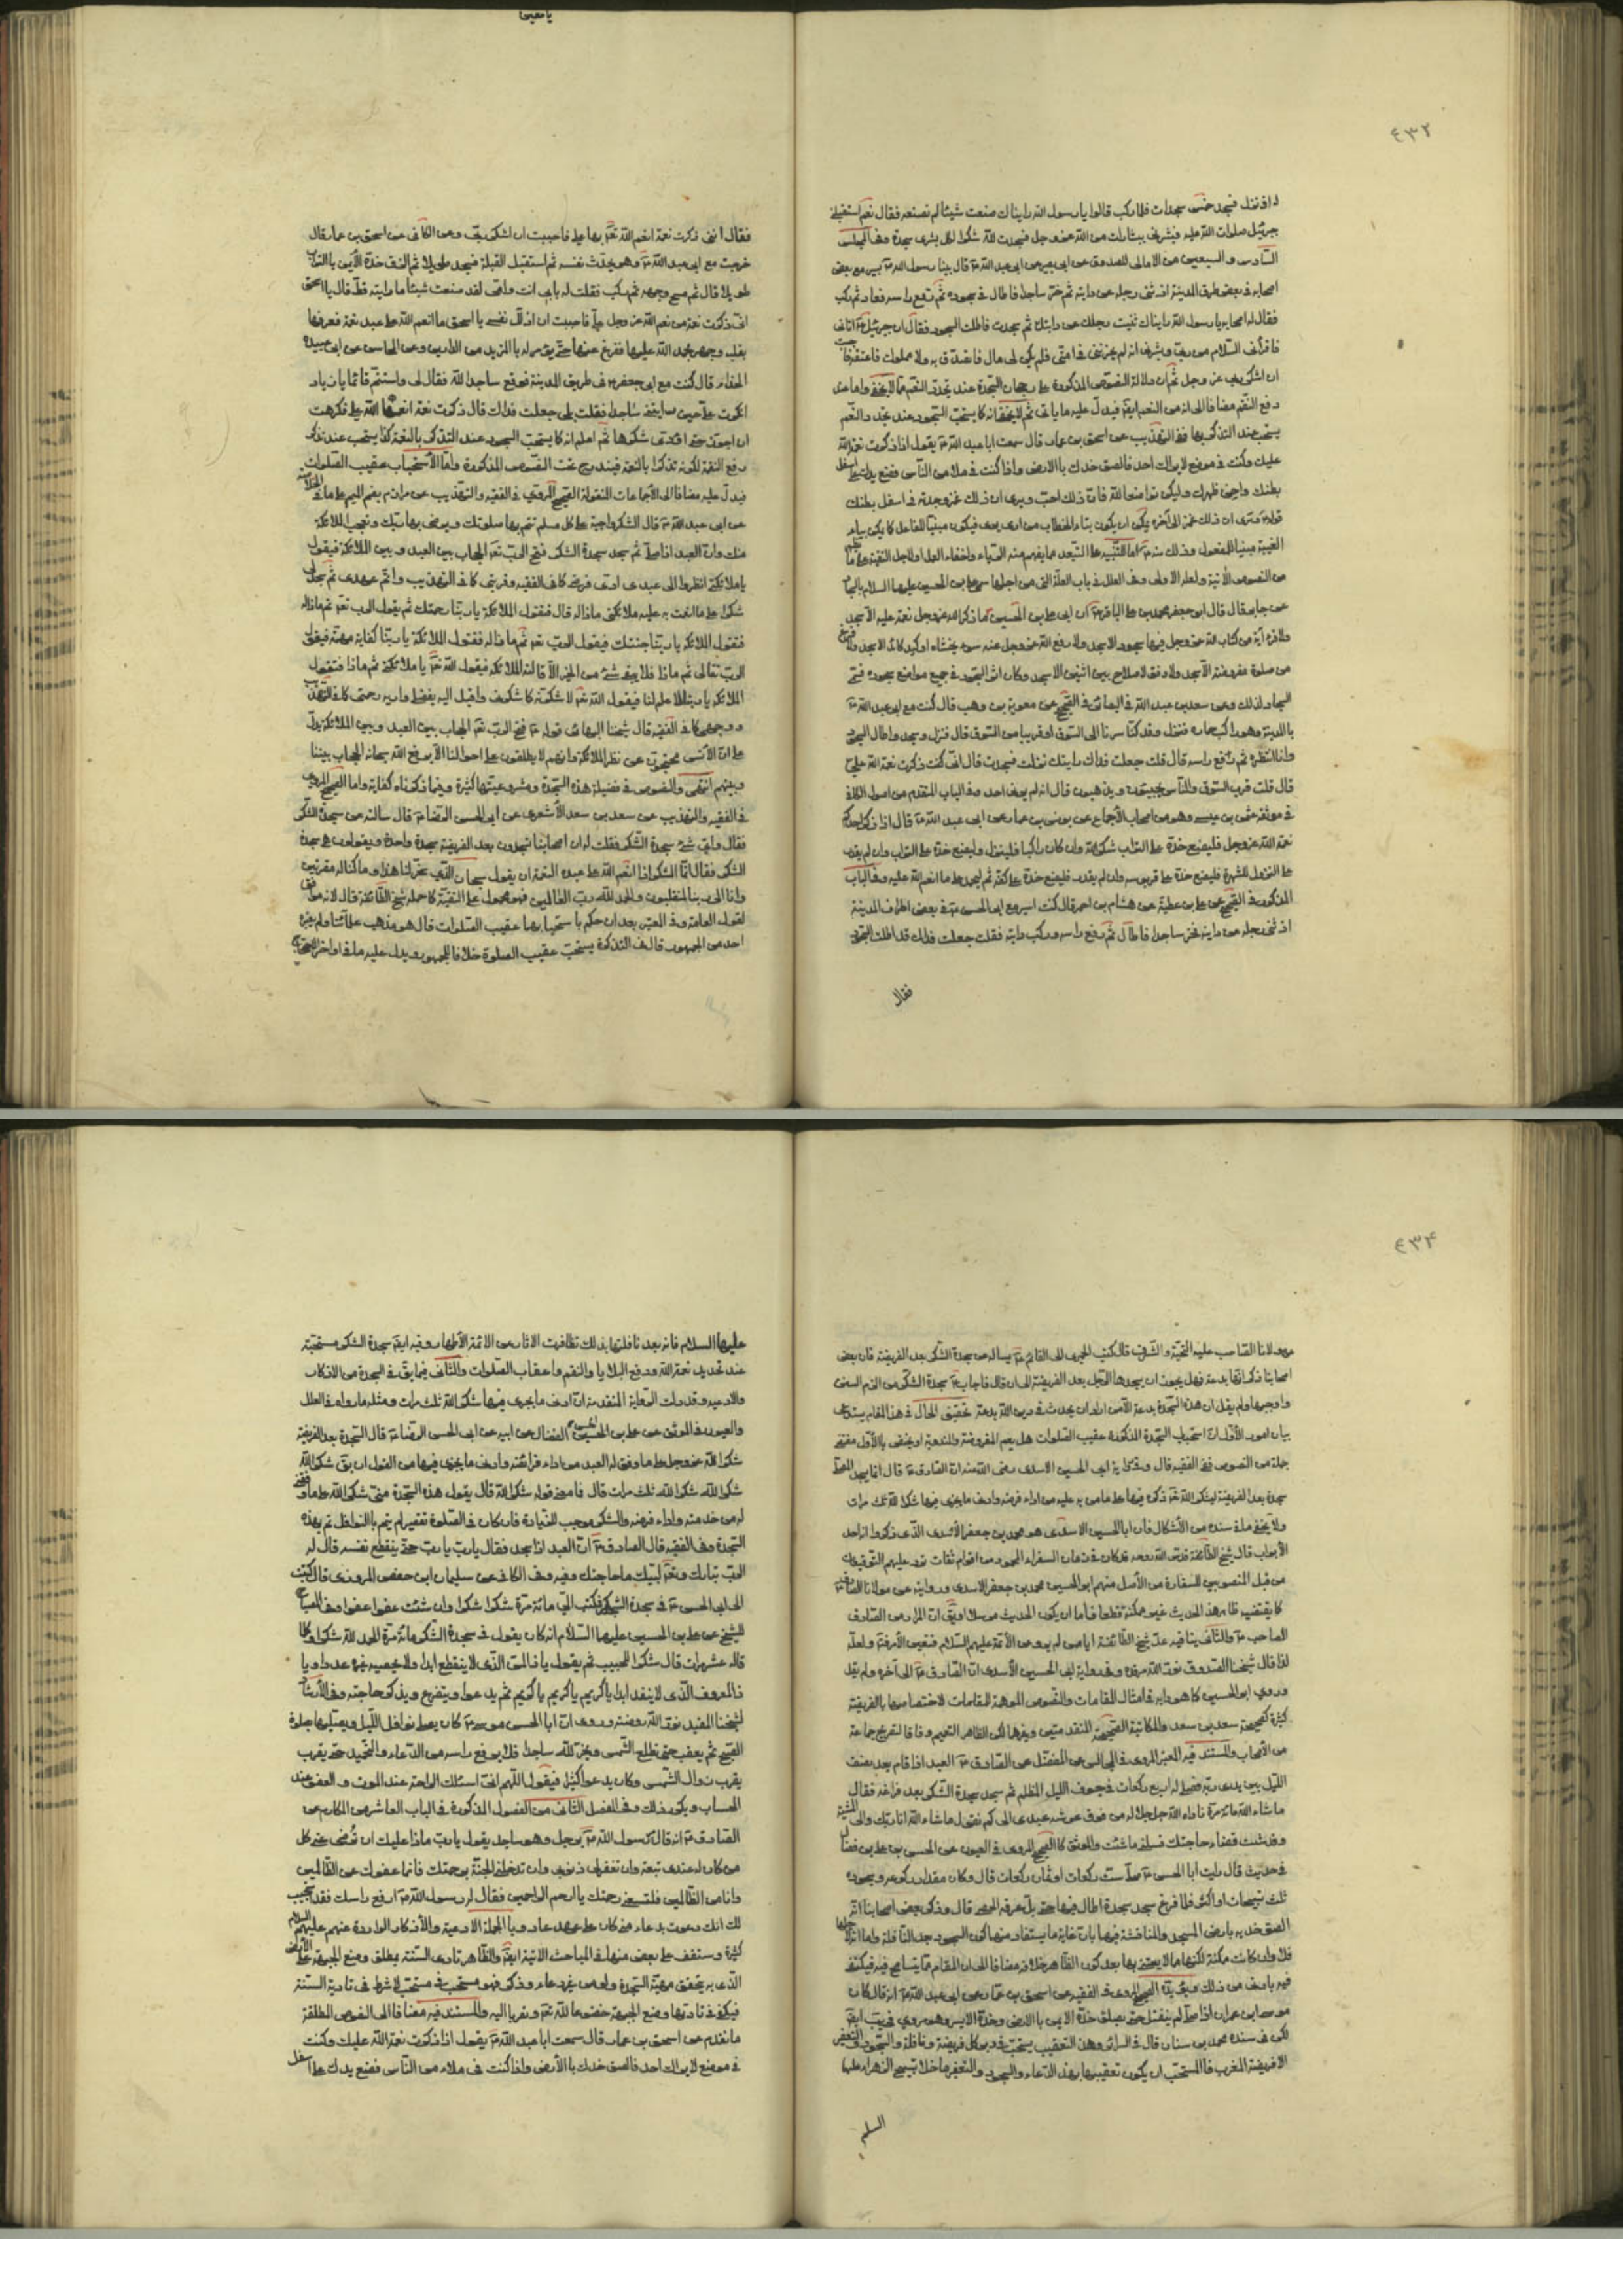 يا معين
٤٣٢
اذ نزل فسجد خمس سجدات فلما ركب قالوا يا رسول الله رايناك صنعت شيئا لم تصنعه فقال نعم استقبلني
جبرئيل صلوات الله عليه فبشرني ببشارات من الله عز وجل فسجدت لله شكرا لكل بشرى سجدة وفي المجلس
السادس والسبعين من الامالي للصدوق عن ابي بصير عن ابي عبد الله ع قال بينا رسول الله ص يسير مع بعض
اصحابه في بعض طرق المدينة اذ ثنى رجله عن دابته ثم خر ساجدا فاطال في سجوده ثم رفع راسه فعاد ثم ركب
فقال له اصحابه يا رسول الله رايناك ثنيت رجلك عن دابتك ثم سجدت فاطلت السجود فقال ان جبرئيل ع اتاني
فاقرأني السلام من ربي وبشرني انه لم يخزني في امتي فلم يكن لي مال فاتصدق به ولا مملوك فاعتقه فاحببت
ان اشكر ربي عز وجل ثم ان دلالة النصوص المذكورة على رجحان السجدة عند تجدد النعم مما لا يخفى واما عند
دفع النقم مضافا الى انه من النعم ايضا فيدل عليه ما ياتي ثم لا يخفى انه كما يستحب السجود عند تجدد النعم
يستحب عند التذكر بها ففي التهذيب عن اسحق بن عمار قال سمعت ابا عبد الله ع يقول اذا ذكرت نعمة الله
عليك وكنت في موضع لا يراك احد فالصق خدك بالارض واذا كنت في ملاء من الناس فضع يدك على اسفل
بطنك واحن ظهرك وليكن تواضعا لله فان ذلك احب ويرى ان ذلك غمز وجدته في اسفل بطنك
قوله وترى ان ذلك غمز الى آخره يمكن ان يكون بتاء الخطاب من ارى يرى فيكون مبنيا للفاعل كما يمكن بياء
الغيبة مبنيا للمفعول
من النصوص الآتية ولعله الاولى وفي العلل في باب العلة التي من اجلها سمي علي بن الحسين عليهما السلام بالسجاد
عن جابر قال قال ابو جعفر محمد بن علي الباقر ع ان ابي علي بن الحسين ما ذكر الله عز وجل نعمة عليه الا سجد
ولا قرء آية من كتاب الله عز وجل فيها سجود الا سجد ولا دفع الله عز وجل عنه سوء يخشاه او كيد كائد الا سجد ولا فرغ
من صلوة مفروضة الا سجد ولا وفق لاصلاح بين اثنين الا سجد وكان اثر السجود في جميع مواضع سجوده فسمي
السجاد لذلك وعن سعد بن عبد الله في البصائر في الصحيح عن معوية بن وهب قال كنت مع ابي عبد الله ع
بالمدينة وهو راكب حماره فنزل وقد كنا سرنا الى السوق او قريبا من السوق قال فنزل وسجد واطال السجود
وانا انتظره ثم رفع راسه قال قلت جعلت فداك رايتك نزلت فسجدت قال اني كنت ذكرت نعمة الله علي
قال قلت قرب السوق والناس يجيئون ويذهبون قال انه لم يرني احد وفي الباب المتقدم من اصول الكافي
في موثقة عثمن بن عيسى وهو من اصحاب الاجماع عن يونس بن عمار عن ابي عبد الله ع قال اذا ذكر احدكم
نعمة الله عز وجل فليضع خده على التراب شكرا لله وان كان راكبا فلينزل وليضع خده على التراب وان لم يقدر
على النزول للشهرة فليضع خده على قربوسه وان لم يقدر فليضع خده على كفه ثم ليحمد على ما انعم الله عليه وفي الباب
المذكور في الصحيح عن علي بن عطية عن هشام بن احمر قال كنت اسير مع ابي الحسن ع في بعض اطراف المدينة
اذ ثنى رجله عن دابته فخر ساجدا فاطال ثم رفع راسه وركب دابته فقلت جعلت فداك قد اطلت السجود
فقال
فقال انني ذكرت نعمة انعم الله تعم بها علي فاحببت ان اشكر ربي وعن الكافي عن اسحق بن عمار قال
خرجت مع ابي عبد الله ع وهو يحدث نفسه ثم استقبل القبلة فسجد طويلا ثم الزق خده الايمن بالتراب
طويلا قال ثم مسح وجهه ثم ركب فقلت له بابي انت وامي لقد صنعت شيئا ما رايته قط قال يا اسحق
اني ذكرت نعمة من نعم الله عز وجل علي فاحببت ان اذلل نفسي يا اسحق ما انعم الله على عبد نعمة فعرفها
بقلبه وجهر بحمد الله عليها ففرغ منها حتى يؤمر له بالمزيد من الدارين وعن المحاسن عن ابي عبيدة
الحذاء قال كنت مع ابي جعفر ع في طريق المدينة فوقع ساجدا لله فقال لي واستتم قائما يا زياد
انكرت علي حين رايتني ساجدا فقلت بلى جعلت فداك قال ذكرت نعمة انعمها الله علي فكرهت
ان اجوز حتى اؤدي شكرها ثم اعلم انه كما يستحب السجود عند التذكر بالنعمة كذا يستحب عند تذكر
دفع النقمة لكونه تذكرا بالنعمة فيندرج تحت النصوص المذكورة واما الاستحباب عقيب الصلوات
فيدل عليه مضافا الى الاجماعات المنقولة الصحيح المروي في الفقيه والتهذيب عن مرازم بضم الميم على ما في الخلاصة
عن ابي عبد الله ع قال الشكر واجبة على كل مسلم تتم بها صلوتك وترضي بها ربك وتعجب الملائكة
منك وان العبد اذا صلى ثم سجد سجدة الشكر فتح الرب تعم الحجاب بين العبد وبين الملائكة فيقول
يا ملائكتي انظروا الى عبدي ادى فرضي كما في الفقيه وقربتي كما في التهذيب واتم عهدي ثم سجد لي
شكرا على ما انعمت به عليه ملائكتي ماذا له قال فتقول الملائكة يا ربنا رحمتك ثم يقول الرب تعم ثم ماذا له
فتقول الملائكة يا ربنا جنتك فيقول الرب تعم ثم ماذا له فتقول الملائكة يا ربنا كفاية مهمه فيقول
الرب تعالى ثم ماذا فلا يبقى شئ من الخير الا قالته الملائكة فيقول الله تعم يا ملائكتي ثم ماذا فتقول
الملائكة يا ربنا لا علم لنا فيقول الله تعم لاشكرنه كما شكرني واقبل اليه بفضلي واريه رحمتي كما في التهذيب
ووجهي كما في الفقيه قال شيخنا البهائي قوله ع فتح الرب تعم الحجاب بين العبد وبين الملائكة يدل
على ان الانس محجوبون عن نظر الملائكة وانهم لا يطلعون على احوالنا الا برفع الله سبحانه الحجاب بيننا
وبينهم انتهى والنصوص في فضيلة هذه السجدة ومشروعيتها كثيرة وفيما ذكرناه كفاية واما الصحيح المروي
في الفقيه والتهذيب عن سعد بن سعد الاشعري عن ابي الحسن الرضا ع قال سالته عن سجدة الشكر
فقال واي شئ سجدة الشكر فقلت له ان اصحابنا يسجدون بعد الفريضة سجدة واحدة ويقولون هي سجدة
الشكر فقال انما الشكر اذا انعم الله على عبده النعمة ان يقول سبحان الذي سخر لنا هذا وما كنا له مقرنين
وانا الى ربنا لمنقلبون والحمد لله رب العالمين فهو محمول على التقية كما حمله شيخ الطائفة قال لانه موافق
لقول العامة وفي المعتبر بعد ان حكم باستحبابها عقيب الصلوات قال هو مذهب علمائنا ولم يعتبره
احد من الجمهور قال في التذكرة يستحب عقيب الصلوة خلافا للجمهور ويدل عليه ما في اواخر
٤٣٤
من مولانا الصاحب عليه التحية والشرف قال كتب الحميري الى القائم ع يساله عن سجدة الشكر بعد الفريضة فان بعض
اصحابنا ذكر انها بدعة فهل يجوز ان يسجدها الرجل بعد الفريضة الى ان قال فاجاب ع سجدة الشكر من الزم السنن
واوجبها ولم يقل ان هذه السجدة بدعة الا من اراد ان يحدث في دين الله بدعة تحقيق الحال في هذا المقام يستدعي
بيان امور الاول ان استحباب السجدة المذكورة عقيب الصلوات هل يعم المفروضة والمندوبة او يختص بالاول مقتضى
جملة من النصوص ففي الفقيه قال وفي رواية ابي الحسين الاسدي رضي الله عنه ان الصادق ع قال انما يسجد المصلي
سجدة بعد الفريضة ليشكر الله تعم ذكره فيها على ما من به عليه من اداء فرضه وادنى ما يجزي فيها شكرا لله ثلث مرات
ولا يخفى ما في سنده من الاشكال فان ابا الحسين الاسدي هو محمد بن جعفر الاسدي الذي ذكروا انه احد
الابواب قال شيخ الطائفة قدس الله روحه قد كان في زمان السفراء المحمودين اقوام ثقات ترد عليهم التوقيعات
من قبل المنصوبين للسفارة من الاصل منهم ابو الحسين محمد بن جعفر الاسدي وروايته عن مولانا الصادق ع
كما يقتضيه ظاهر هذا الحديث غير ممكنة قطعا فاما ان يكون الحديث مرسلا او يق ان المراد من الصادق
الصاحب ع والثاني ينافيه عد شيخ الطائفة اياه من لم يرو عن الائمة عليهم السلام فتعين الاول ولعله
لذا قال شيخنا الصدوق نور الله مرقده وفي رواية ابي الحسين الاسدي ان الصادق ع الى آخره ولم يقل
وروى ابو الحسين كما هو دابه في امثال المقامات والنصوص الموهمة للمقامات لاختصاصها بالفريضة
كثيرة كصحيحة سعد بن سعد والمكاتبة الصحيحة المتقدمتين وغيرها لكن الظاهر التعميم وفاقا لتصريح جماعة
من الاصحاب والمستند فيه المعتبر المروي في المجالس عن المفضل عن الصادق ع العبد اذا قام بعد نصف
الليل بين يدي ربه فصلى له اربع ركعات في جوف الليل المظلم ثم سجد سجدة الشكر بعد فراغه فقال
ما شاء الله مائة مرة ناداه الله جل جلاله من فوق عرشه عبدي الى كم تقول ما شاء الله انا ربك والي المشية
وقد شئت قضاء حاجتك فسلني ما شئت والموثق كالصحيح المروي في العيون عن الحسن بن علي بن فضال
في حديث قال رايت ابا الحسن ع صلى ست ركعات او ثمان ركعات قال وكان مقدار ركوعه وسجوده
ثلث تسبيحات او اكثر فلما فرغ سجد سجدة اطال فيها حتى بل عرقه الحصى قال وذكر بعض اصحابنا انه
الصق خديه بارض المسجد والمناقشة فيها بان غاية ما يستفاد منها كون السجود بعد النافلة واما انه لاجلها
فلا وان كانت ممكنة لكنها مما لا يعتنى بها بعد كون الظاهر خلافه مضافا الى ان المقام مما يتسامح فيه فيكتفى
فيه بادنى من ذلك ويؤيده الصحيح المروي في الفقيه عن اسحق بن عمار عن ابي عبد الله ع انه قال كان
موسى بن عمران اذا صلى لم ينفتل حتى يلصق خده الايمن بالارض وخده الايسر وهو مروي في يب ايضا
لكن في سنده محمد بن سنان قال في السرائر وهذا التعقيب يستحب في دبر كل فريضة ونافلة والسجود والتعفير
الا فريضة المغرب فالمستحب ان يكون تعقيبها بهذا الدعاء والسجود والتعفير ما خلا تسبيح الزهراء عليها
السلم
عليها السلام فانه بعد نافلتها بذلك تظافرت الاثار عن الائمة الاطهار وفيه ايضا سجدة الشكر مستحبة
عند تجديد نعم الله ودفع البلايا والنقم واعقاب الصلوات والثاني فيما يق في السجدة من الاذكار
والادعية وقد دلت الرواية المتقدمة ان ادنى ما يجزي فيها شكرا لله ثلث مرات ومثله ما رواه في العلل
والعيون في الموثق عن علي بن الحسن بن الفضال عن ابيه عن ابي الحسن الرضا ع قال السجدة بعد الفريضة
شكرا لله عز وجل على ما وفق له العبد من اداء فرائضه وادنى ما يجزي فيها من القول ان يق شكرا لله
شكرا لله شكرا لله ثلث مرات قال فما معنى قوله شكرا لله قال يقول هذه السجدة مني شكرا لله على ما وفقني
له من خدمته واداء فرضه والشكر موجب للزيادة فان كان في الصلوة تقصير لم يتم بالنوافل تم بهذه
السجدة وفي الفقيه قال الصادق ع ان العبد اذا سجد فقال يا رب يا رب حتى ينقطع نفسه قال له
الرب تبارك وتعم لبيك ما حاجتك وفيه وفي الكافي عن سليمان بن حفص المروزي قال كتبت
الى ابي الحسن ع في سجدة الشكر فكتب الي مائة مرة شكرا شكرا وان شئت عفوا عفوا وفي المصباح
للشيخ عن علي بن الحسين عليهما السلام انه كان يقول في سجدة الشكر مائة مرة الحمد لله شكرا وكلما
قاله عشر مرات قال شكرا للمجيب ثم يقول يا ذا المن الذي لا ينقطع ابدا ولا يحصيه غيره عددا ويا
ذا المعروف الذي لا ينفد ابدا يا كريم يا كريم يا كريم ثم يدعو ويتضرع ويذكر حاجته وفي الارشاد
لشيخنا المفيد نور الله روضته وروى ان ابا الحسن موسى ع كان يصلي نوافل الليل ويصلها بصلوة
الصبح ثم يعقب حتى تطلع الشمس ويخر لله ساجدا فلا يرفع راسه من الدعاء والتحميد حتى يقرب
يقرب زوال الشمس وكان يدعو كثيرا فيقول اللهم اني اسئلك الراحة عند الموت والعفو عند
الحساب ويكرر ذلك وفي الفصل الثاني من الفصول المذكورة في الباب العاشر من المكارم عن
الصادق ع انه قال مر رسول الله ص برجل وهو ساجد يقول يا رب ماذا عليك ان ترضي عني كل
من كان له عندي تبعة وان تغفر لي ذنوبي وان تدخلني الجنة برحمتك فانما عفوك عن الظالمين
وانا من الظالمين فلتسعني رحمتك يا ارحم الراحمين فقال له رسول الله ص ارفع راسك فقد استجيب
لك انك دعوت بدعاء نبي كان على عهد عاد وبالجملة الادعية والاذكار الواردة عنهم عليهم السلام
كثيرة وستقف على بعض منها في المباحث الاتية ايضا والظاهر تادي السنة بمطلق وضع الجبهة على الارض
الذي به يتحقق مهية السجدة ولو من غير دعاء وذكر فهو مستحب في مستحب لا شرط في تادية السنة
فيكفي في تاديتها وضع الجبهة خضوعا لله تعم وتقربا اليه والمستند فيه مضافا الى النصوص المطلقة
ما تقدم عن اسحق بن عمار قال سمعت ابا عبد الله ع يقول اذا ذكرت نعمة الله عليك وكنت
في موضع لا يراك احد فالصق خدك بالارض واذا كنت في ملاء من الناس فضع يدك على اسفل